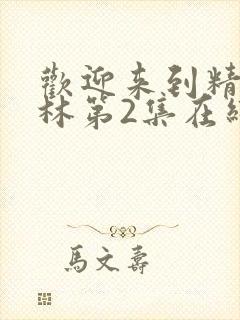 歡迎来到精
林第2集在
馬文壽